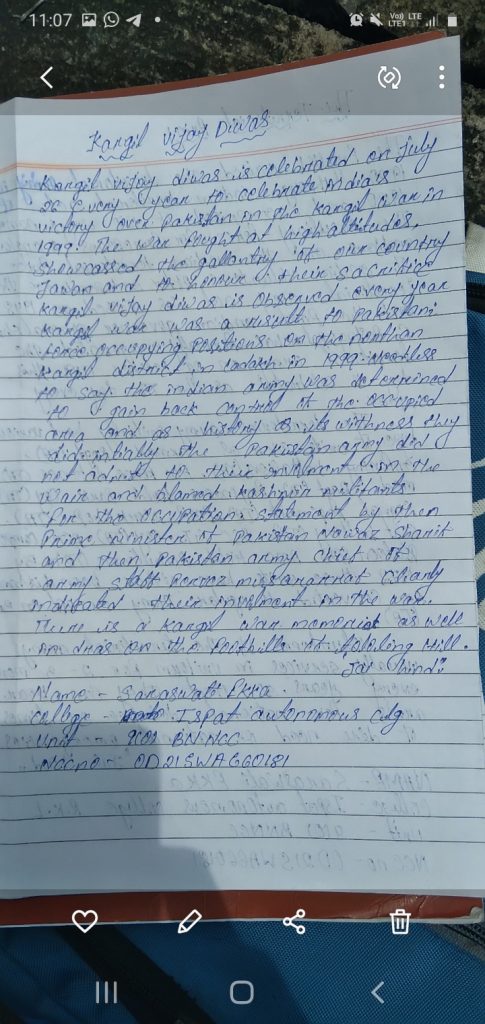 11:07
Voo) LTE
LTE1
Kargil vijay Diwas
Kargil vijay diwas is celebrated on July
26 every year to celebrate India's
victory over Pakistan in the Kargil war in
1999. The war fought at high altitudes,
showcassed the gallantry of our country
Jawan and to honour their sacrifice
Kargil vijay diwas is observed every year
Kargil war was a result to Pakistani
force occupying positions on the
Kargil district in Ladakh in 1999. Needless
to say the indian army was determined
to gain back control of the occupied
area and as history is its witness they
did initially the Pakistan army did
not admit to their in the
war and blamed Kashmir militants
for the occupation statement by then
Prime minister of Pakistan Nawaz Sharif
and then Pakistan army chief of
army staff
indicated their in the war.
There is a Kargil war memorial as well
in dras on the foothills of Tololing Hill.
Jai hind!
Name - Saraswati Ekka.
College - Ispat autonomous clg
Unit - BN NCC
NCC no - OD21SWA660181